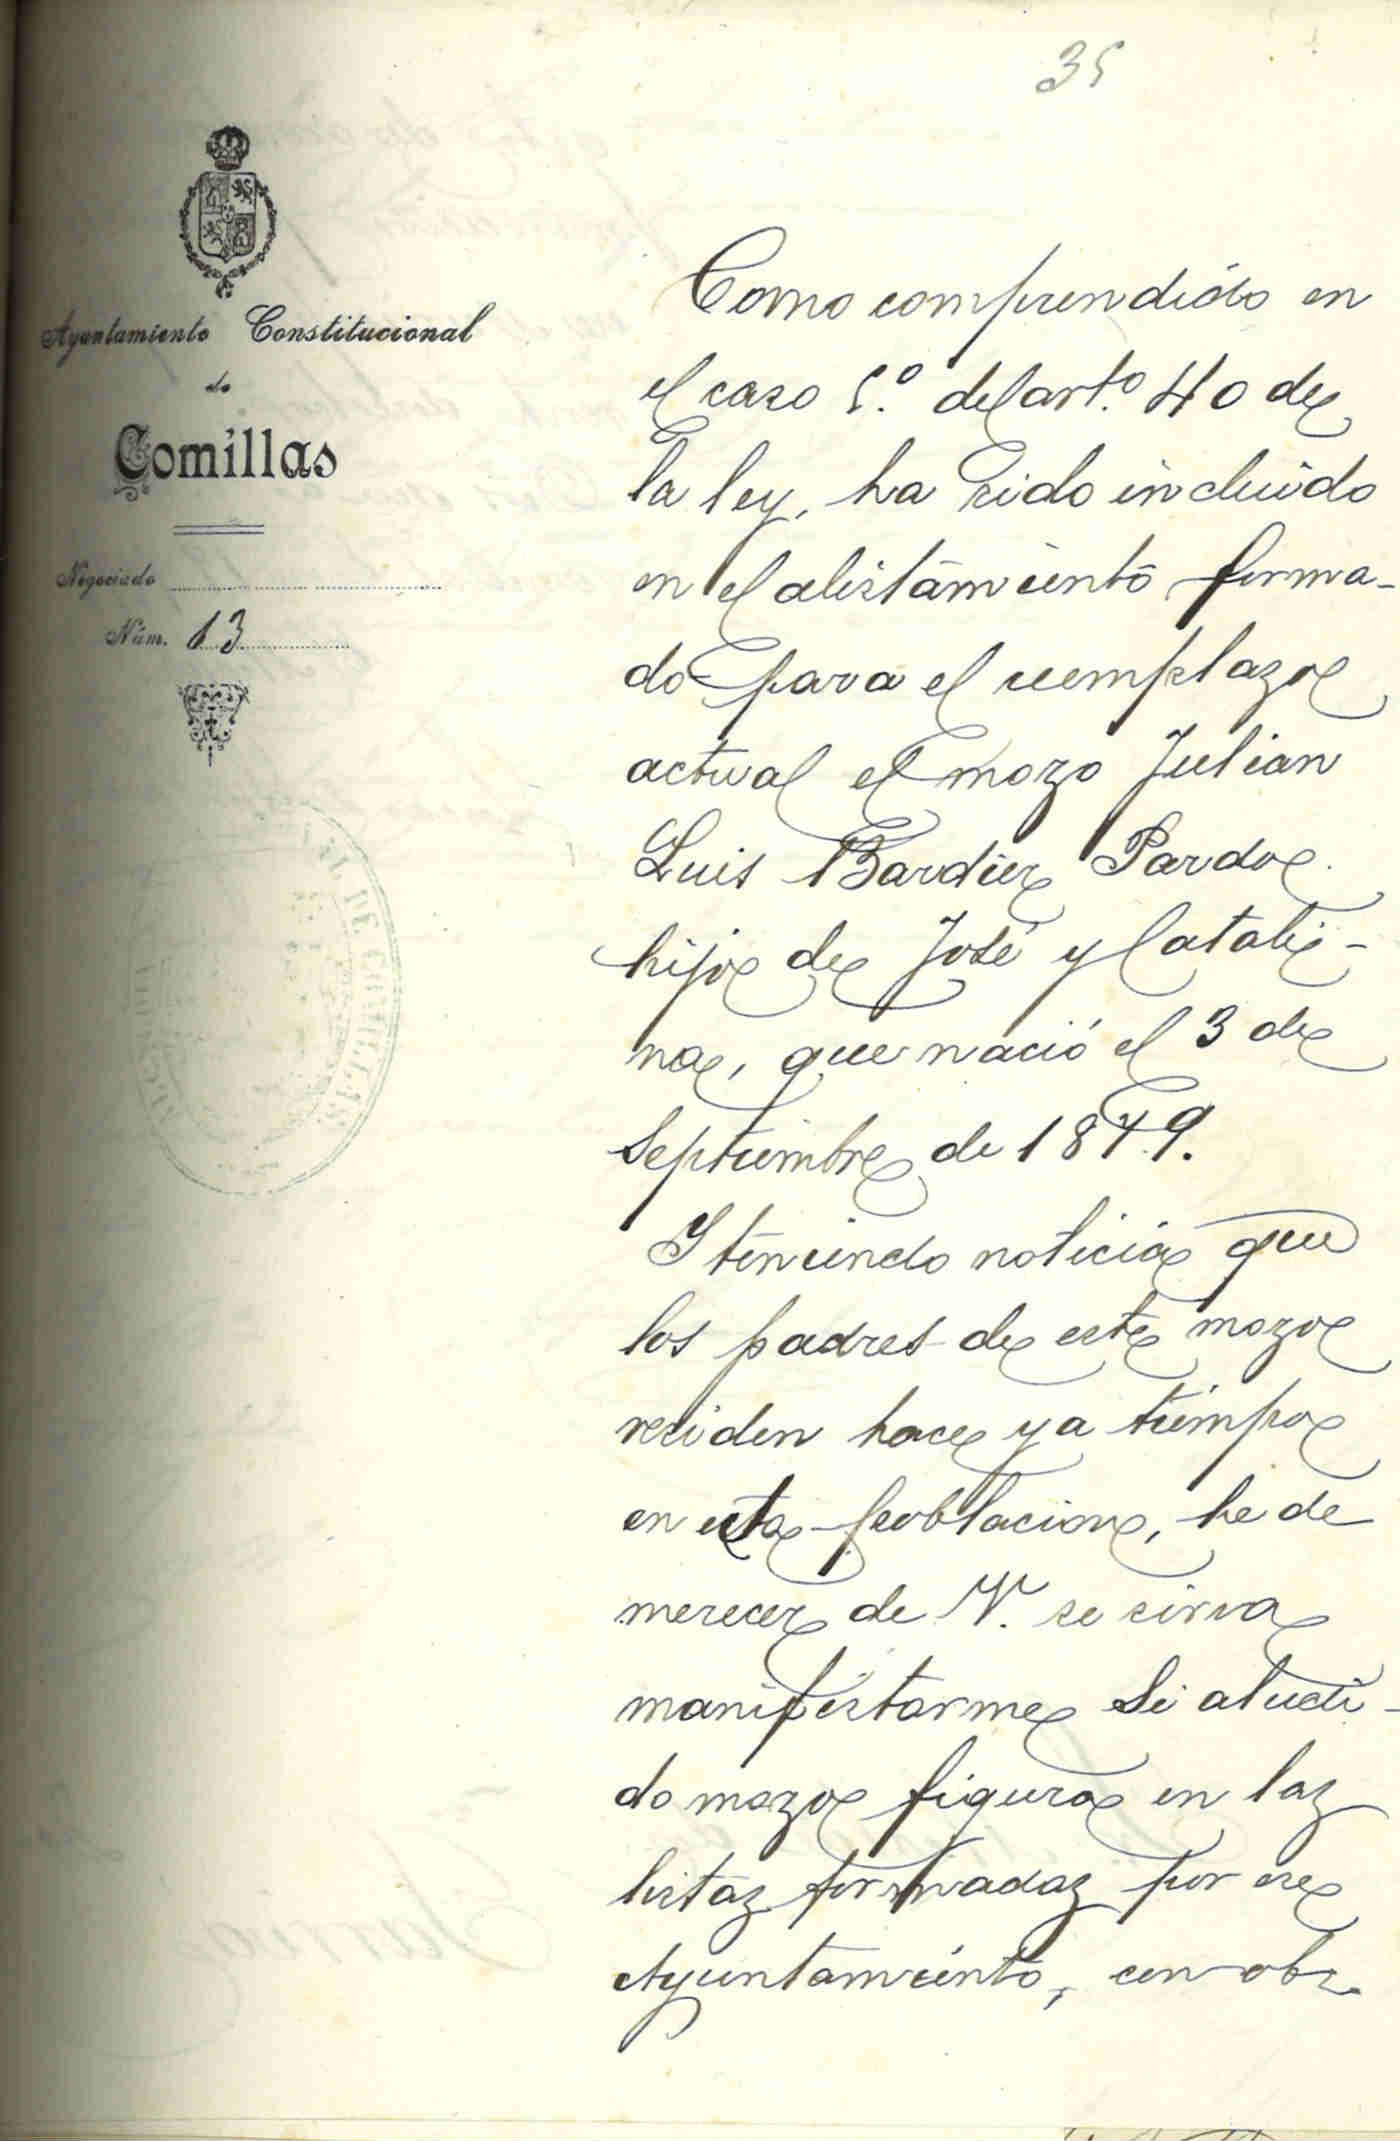 35
Ayuntamiento Constitucional
de
Comillas
Negociado
Núm. 13
DE COMILLAS
Como comprendido en
el caso 5.º del art.º 40 de
la ley, ha sido incluido
en el alistamiento forma-
do para el reemplazo
actual el mozo Julian
Luis Bardier Pardo
hijo de José y Catali-
na, que nació el 3 de
Septiembre de 1879.
Y teniendo noticia que
los padres de este mozo
residen hace ya tiempo
en esta poblacion, he de
merecer de V. se sirva
manifestarme si aludi-
do mozo figura en las
listas formadas por ese
Ayuntamiento, con ob-